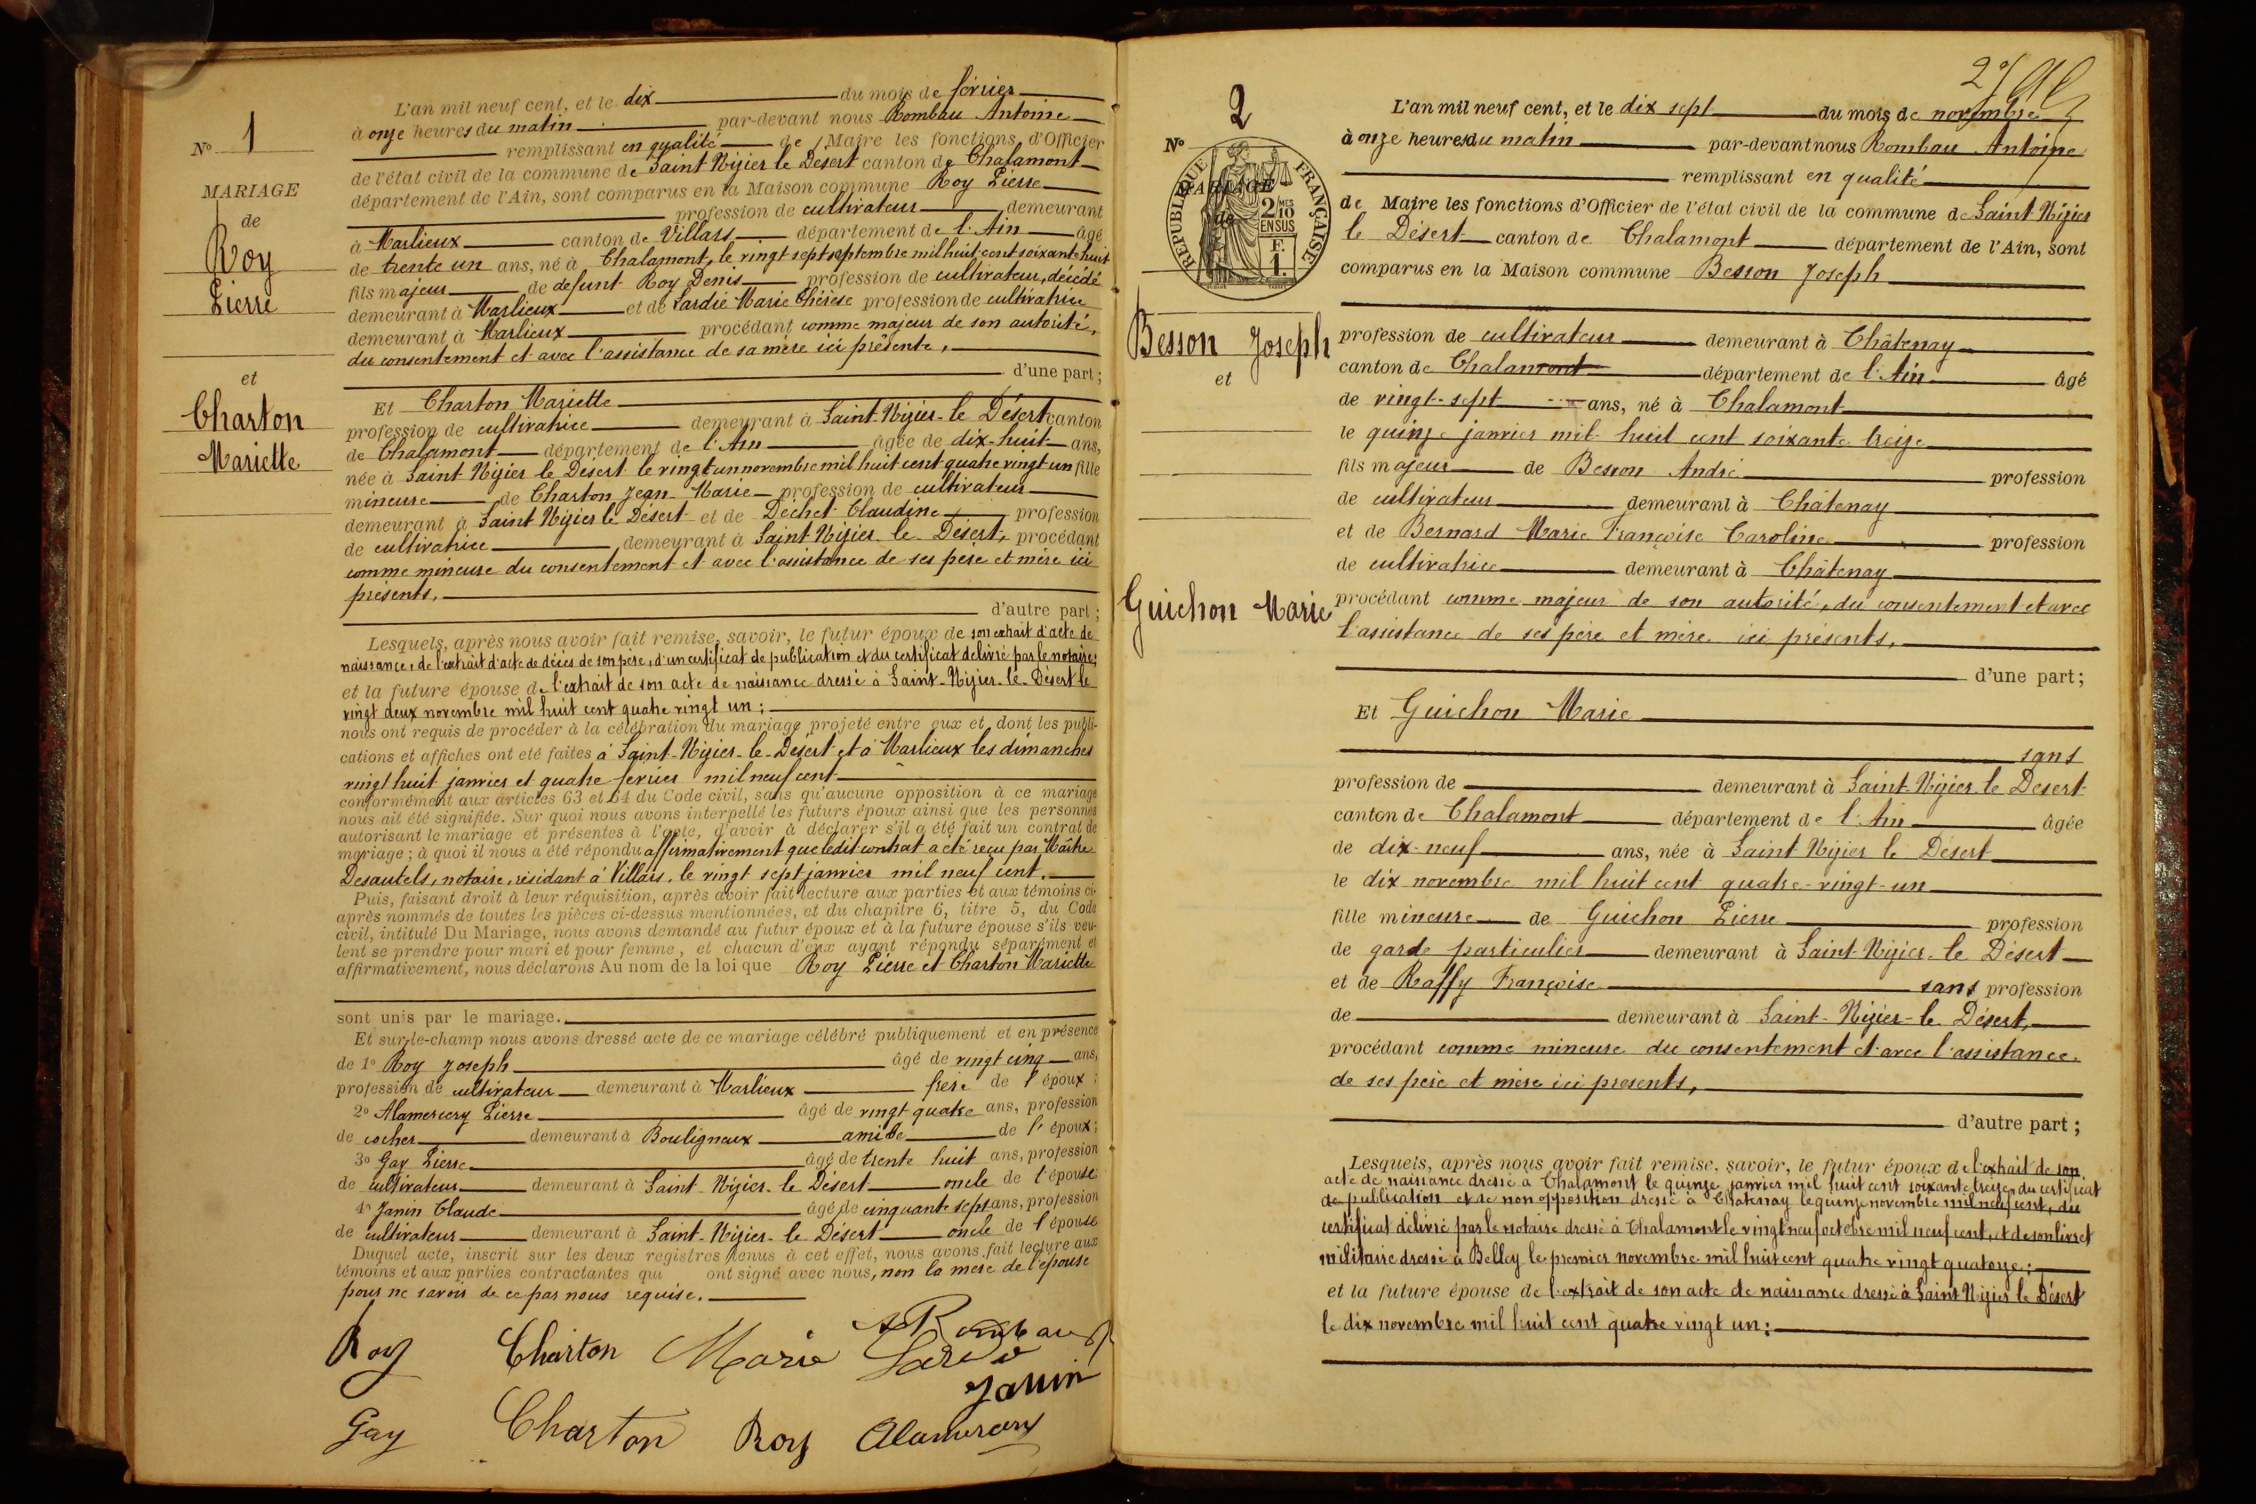 N° 1
MARIAGE
de
Roy
Pierre
et
Charton
Mariette
L'an mil neuf cent, et le dix du mois de février
à onze heures du matin par-devant nous Rombau Antoine
remplissant en qualité de Maire les fonctions d'Officier
de l'état civil de la commune de Saint Nizier le Désert canton de Chalamont
département de l'Ain, sont comparus en la Maison commune Roy Pierre
profession de cultivateur demeurant
à Marlieux canton de Villars département de l'Ain âgé
de trente un ans, né à Chalamont, le vingt sept septembre mil huit cent soixante huit
fils majeur de defunt Roy Denis profession de cultivateur, décédé
demeurant à Marlieux et de Lardié Marie Thérèse profession de cultivatrice
demeurant à Marlieux procédant comme majeur de son autorité,
du consentement et avec l'assistance de sa mère ici présente,
d'une part;
Et Charton Mariette
profession de cultivatrice demeurant à Saint-Nizier-le Désert canton
de Chalamont département de l'Ain âgée de dix-huit ans,
née à Saint Nizier le Désert le vingt un novembre mil huit cent quatre vingt un fille
mineure de Charton Jean-Marie profession de cultivateur
demeurant à Saint Nizier le Désert et de Dechet Claudine profession
de cultivatrice demeurant à Saint Nizier le Désert, procédant
comme mineure du consentement et avec l'assistance de ses père et mère ici
présents,
d'autre part;
Lesquels, après nous avoir fait remise, savoir, le futur époux de son extrait d'acte de
naissance, de l'extrait d'acte de décès de son père, d'un certificat de publication et du certificat délivré par le notaire;
et la future épouse de l'extrait de son acte de naissance dressé à Saint-Nizier-le-Désert le
vingt deux novembre mil huit cent quatre vingt un;
nous ont requis de procéder à la célébration du mariage projeté entre eux et dont les publi-
cations et affiches ont été faites à Saint-Nizier-le-Désert et à Marlieux les dimanches
vingt huit janvier et quatre fevrier mil neuf cent
conformément aux articles 63 et 64 du Code civil, sans qu'aucune opposition à ce mariage
nous ait été signifiée. Sur quoi nous avons interpellé les futurs époux ainsi que les personnes
autorisant le mariage et présentes à l'acte, d'avoir à déclarer s'il a été fait un contrat de
mariage; à quoi il nous a été répondu affirmativement que ledit contrat a été reçu par Maître
Desautels, notaire, résidant à Villars, le vingt sept janvier mil neuf cent.
Puis, faisant droit à leur réquisition, après avoir fait lecture aux parties et aux témoins ci-
après nommés de toutes les pièces ci-dessus mentionnées, et du chapitre 6, titre 5, du Code
civil, intitulé Du Mariage, nous avons demandé au futur époux et à la future épouse s'ils veu-
lent se prendre pour mari et pour femme, et chacun d'eux ayant répondu séparément et
affirmativement, nous déclarons Au nom de la loi que Roy Pierre et Charton Mariette
sont unis par le mariage.
Et sur-le-champ nous avons dressé acte de ce mariage célébré publiquement et en présence
de 1° Roy Joseph âgé de vingt cinq ans,
profession de cultivateur demeurant à Marlieux frère de l'époux;
2° Alamercery Pierre âgé de vingt quatre ans, profession
de cocher demeurant à Bouligneux ami de de l'époux;
3° Gay Pierre âgé de trente huit ans, profession
de cultivateur demeurant à Saint-Nizier-le Désert oncle de l'épouse
4° Janin Claude âgé de cinquante sept ans, profession
de cultivateur demeurant à Saint-Nizier-le Désert oncle de l'épouse
Duquel acte, inscrit sur les deux registres tenus à cet effet, nous avons fait lecture aux
témoins et aux parties contractantes qui ont signé avec nous, non la mère de l'épouse
pour ne savoir de ce par nous requise.
A Rombau
Roy Charton Marie Lardié
Janin
Gay Charton Roy Alamercery
2
N° 2
MARIAGE
de
RÉPUBLIQUE FRANÇAISE
2/10 MES
EN SUS
F.
1.
Besson Joseph
et
Guichon Marie
L'an mil neuf cent, et le dix sept du mois de novembre
à onze heures du matin par-devant nous Rombau Antoine
remplissant en qualité
de Maire les fonctions d'Officier de l'état civil de la commune de Saint Nizier
le Désert canton de Chalamont département de l'Ain, sont
comparus en la Maison commune Besson Joseph
profession de cultivateur demeurant à Châtenay
canton de Chalamont département de l'Ain âgé
de vingt-sept ans, né à Chalamont
le quinze janvier mil huit cent soixante treize
fils majeur de Besson André profession
de cultivateur demeurant à Châtenay
et de Bernard Marie Françoise Caroline profession
de cultivatrice demeurant à Châtenay
procédant comme majeur de son autorité, du consentement et avec
l'assistance de ses père et mère ici présents,
d'une part;
Et Guichon Marie
sans
profession de demeurant à Saint-Nizier le Désert
canton de Chalamont département de l'Ain âgée
de dix-neuf ans, née à Saint Nizier le Désert
le dix novembre mil huit cent quatre-vingt-un
fille mineure de Guichon Pierre profession
de garde particulier demeurant à Saint-Nizier-le Désert
et de Raffy Françoise sans profession
de demeurant à Saint-Nizier-le Désert,
procédant comme mineure du consentement et avec l'assistance
de ses père et mère ici présents,
d'autre part;
Lesquels, après nous avoir fait remise, savoir, le futur époux de l'extrait de son
acte de naissance dressé à Chalamont le quinze janvier mil huit cent soixante treize, du certificat
de publication et de non opposition dressé à Chatenay le quinze novembre mil neuf cent, du
certificat délivré par le notaire dressé à Chalamont le vingt neuf octobre mil neuf cent, et de son livret
militaire dressé à Belley le premier novembre mil huit cent quatre vingt quatorze;
et la future épouse de l'extrait de son acte de naissance dressé à Saint Nizier le Désert
le dix novembre mil huit cent quatre vingt un;